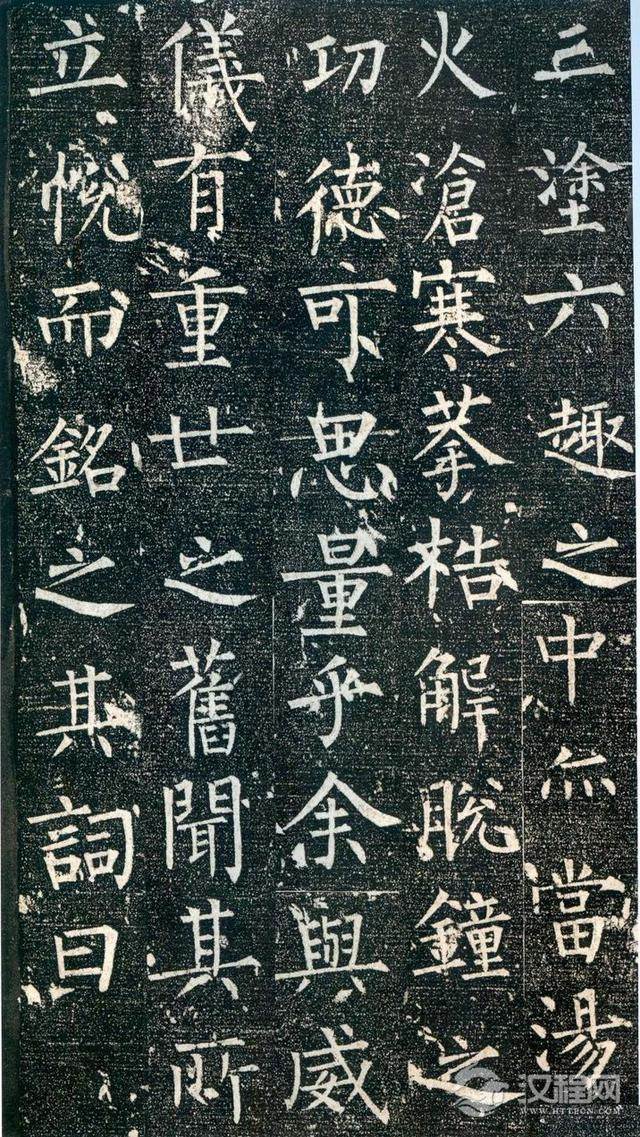 三塗六趣之中亦當湯
火滄寒梏解脫鐘之
功德可思量乎余與威
儀有重世之舊聞其所
立悅而銘之其詞曰
汉程网
WWW.HTTPCN.COM